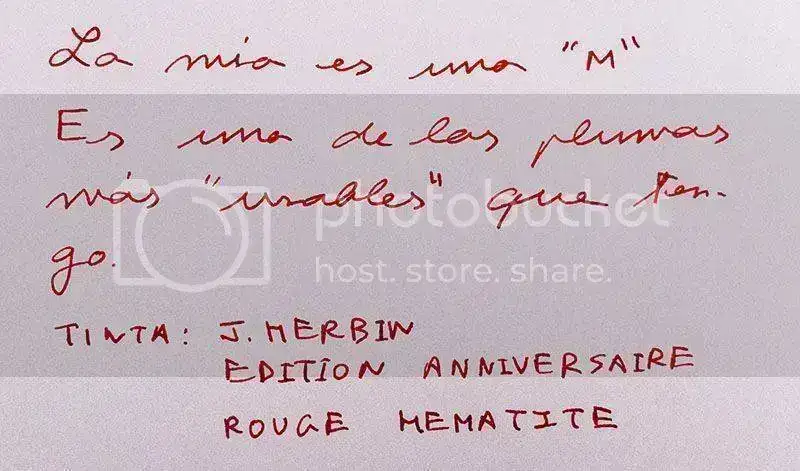 La mia es una "M"
Es una de las plumas
más "usables" que ten-
go.
photobucket
host. store. share.
TINTA: J. HERBIN
EDITION ANNIVERSAIRE
ROUGE HEMATITE